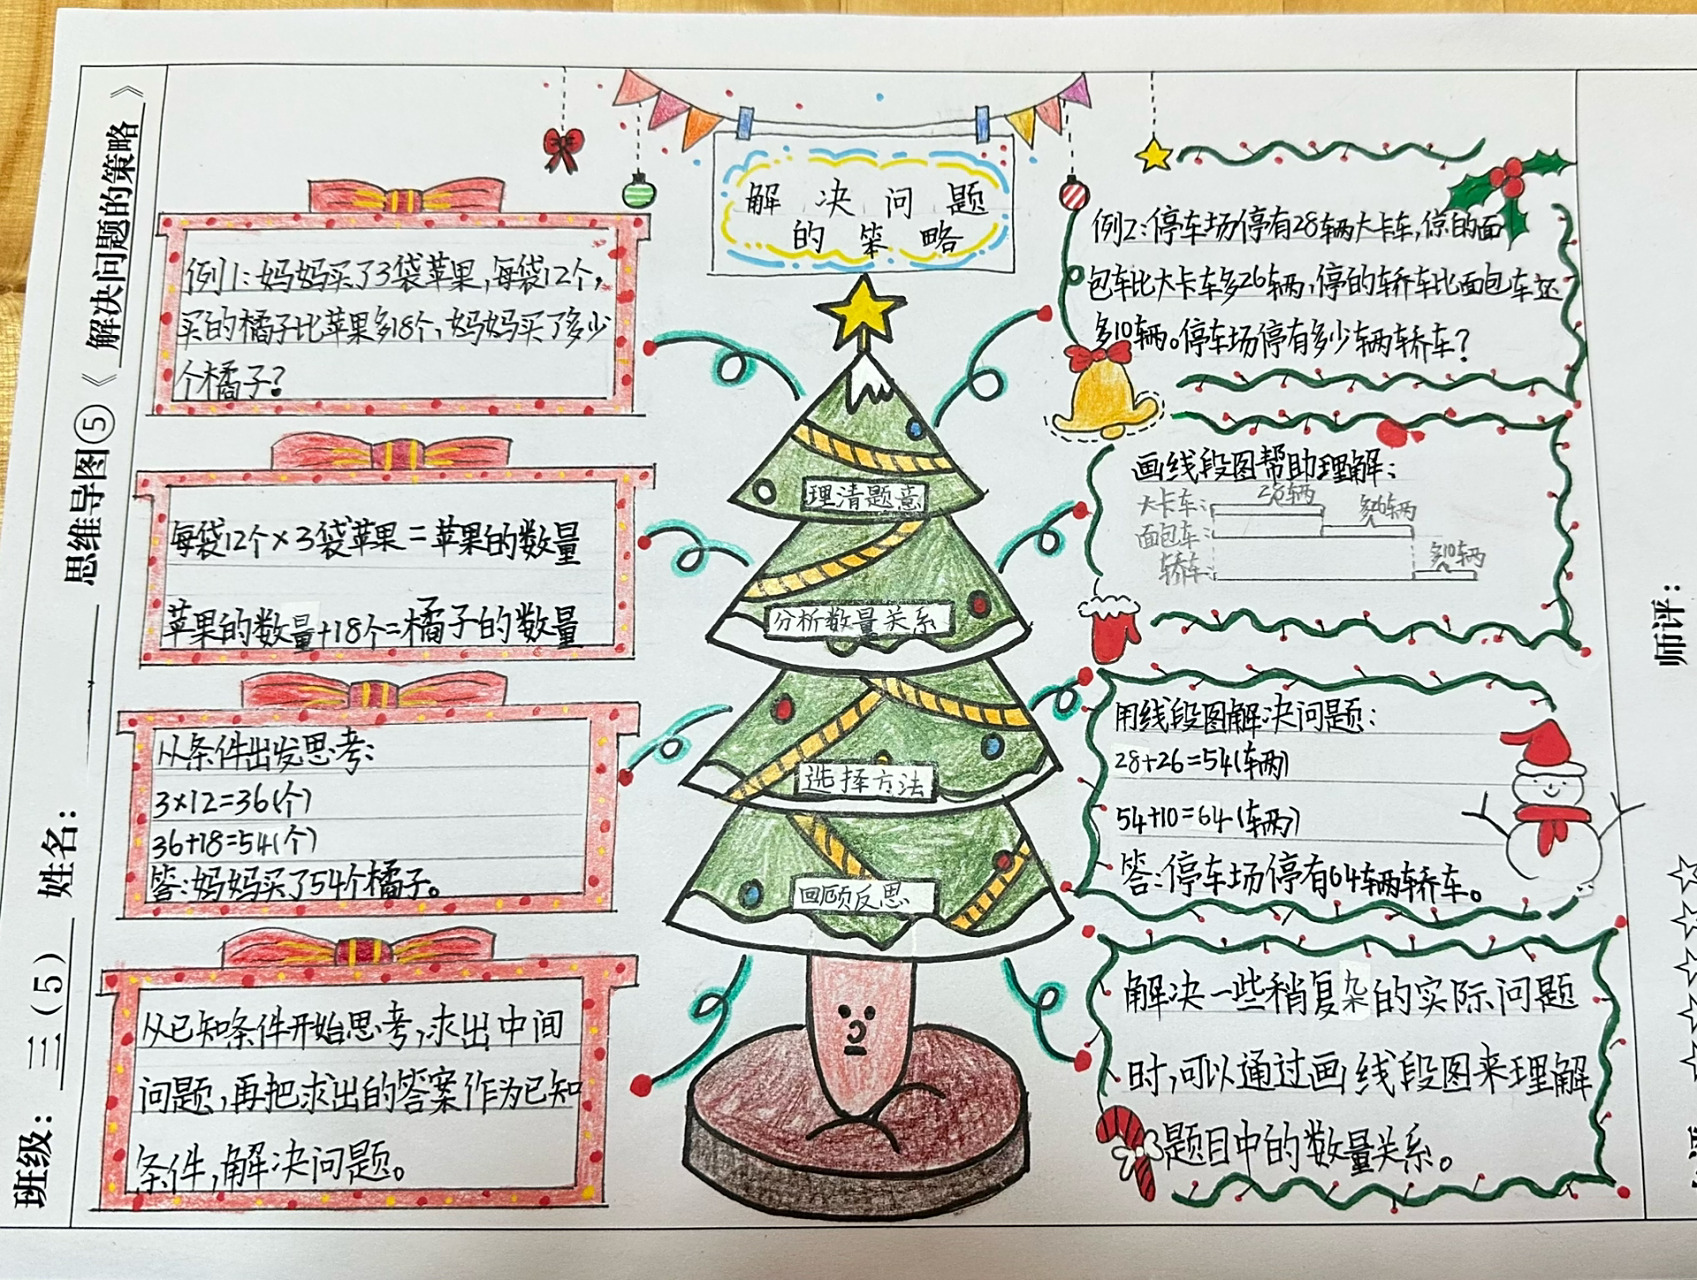 班级： 三（5） 姓名： 思维导图⑤《 解决问题的策略 》
解决问题
的策略
例1：妈妈买了3袋苹果，每袋12个，
买的橘子比苹果多18个，妈妈买了多少
个橘子？
每袋12个×3袋苹果=苹果的数量
苹果的数量+18个=橘子的数量
从条件出发思考：
3×12=36(个)
36+18=54(个)
答：妈妈买了54个橘子。
从已知条件开始思考，求出中间
问题，再把求出的答案作为已知
条件，解决问题。
理清题意
分析数量关系
选择方法
回顾反思
例2：停车场停有28辆大卡车，停的面
包车比大卡车多26辆，停的轿车比面包车还
多10辆。停车场停有多少辆轿车？
画线段图帮助理解：
大卡车： 28辆
面包车： 多26辆
轿车： 多10辆
用线段图解决问题：
28+26=54(辆)
54+10=64(辆)
答：停车场停有64辆轿车。
解决一些稍复杂的实际问题
时，可以通过画线段图来理解
题目中的数量关系。
师评：